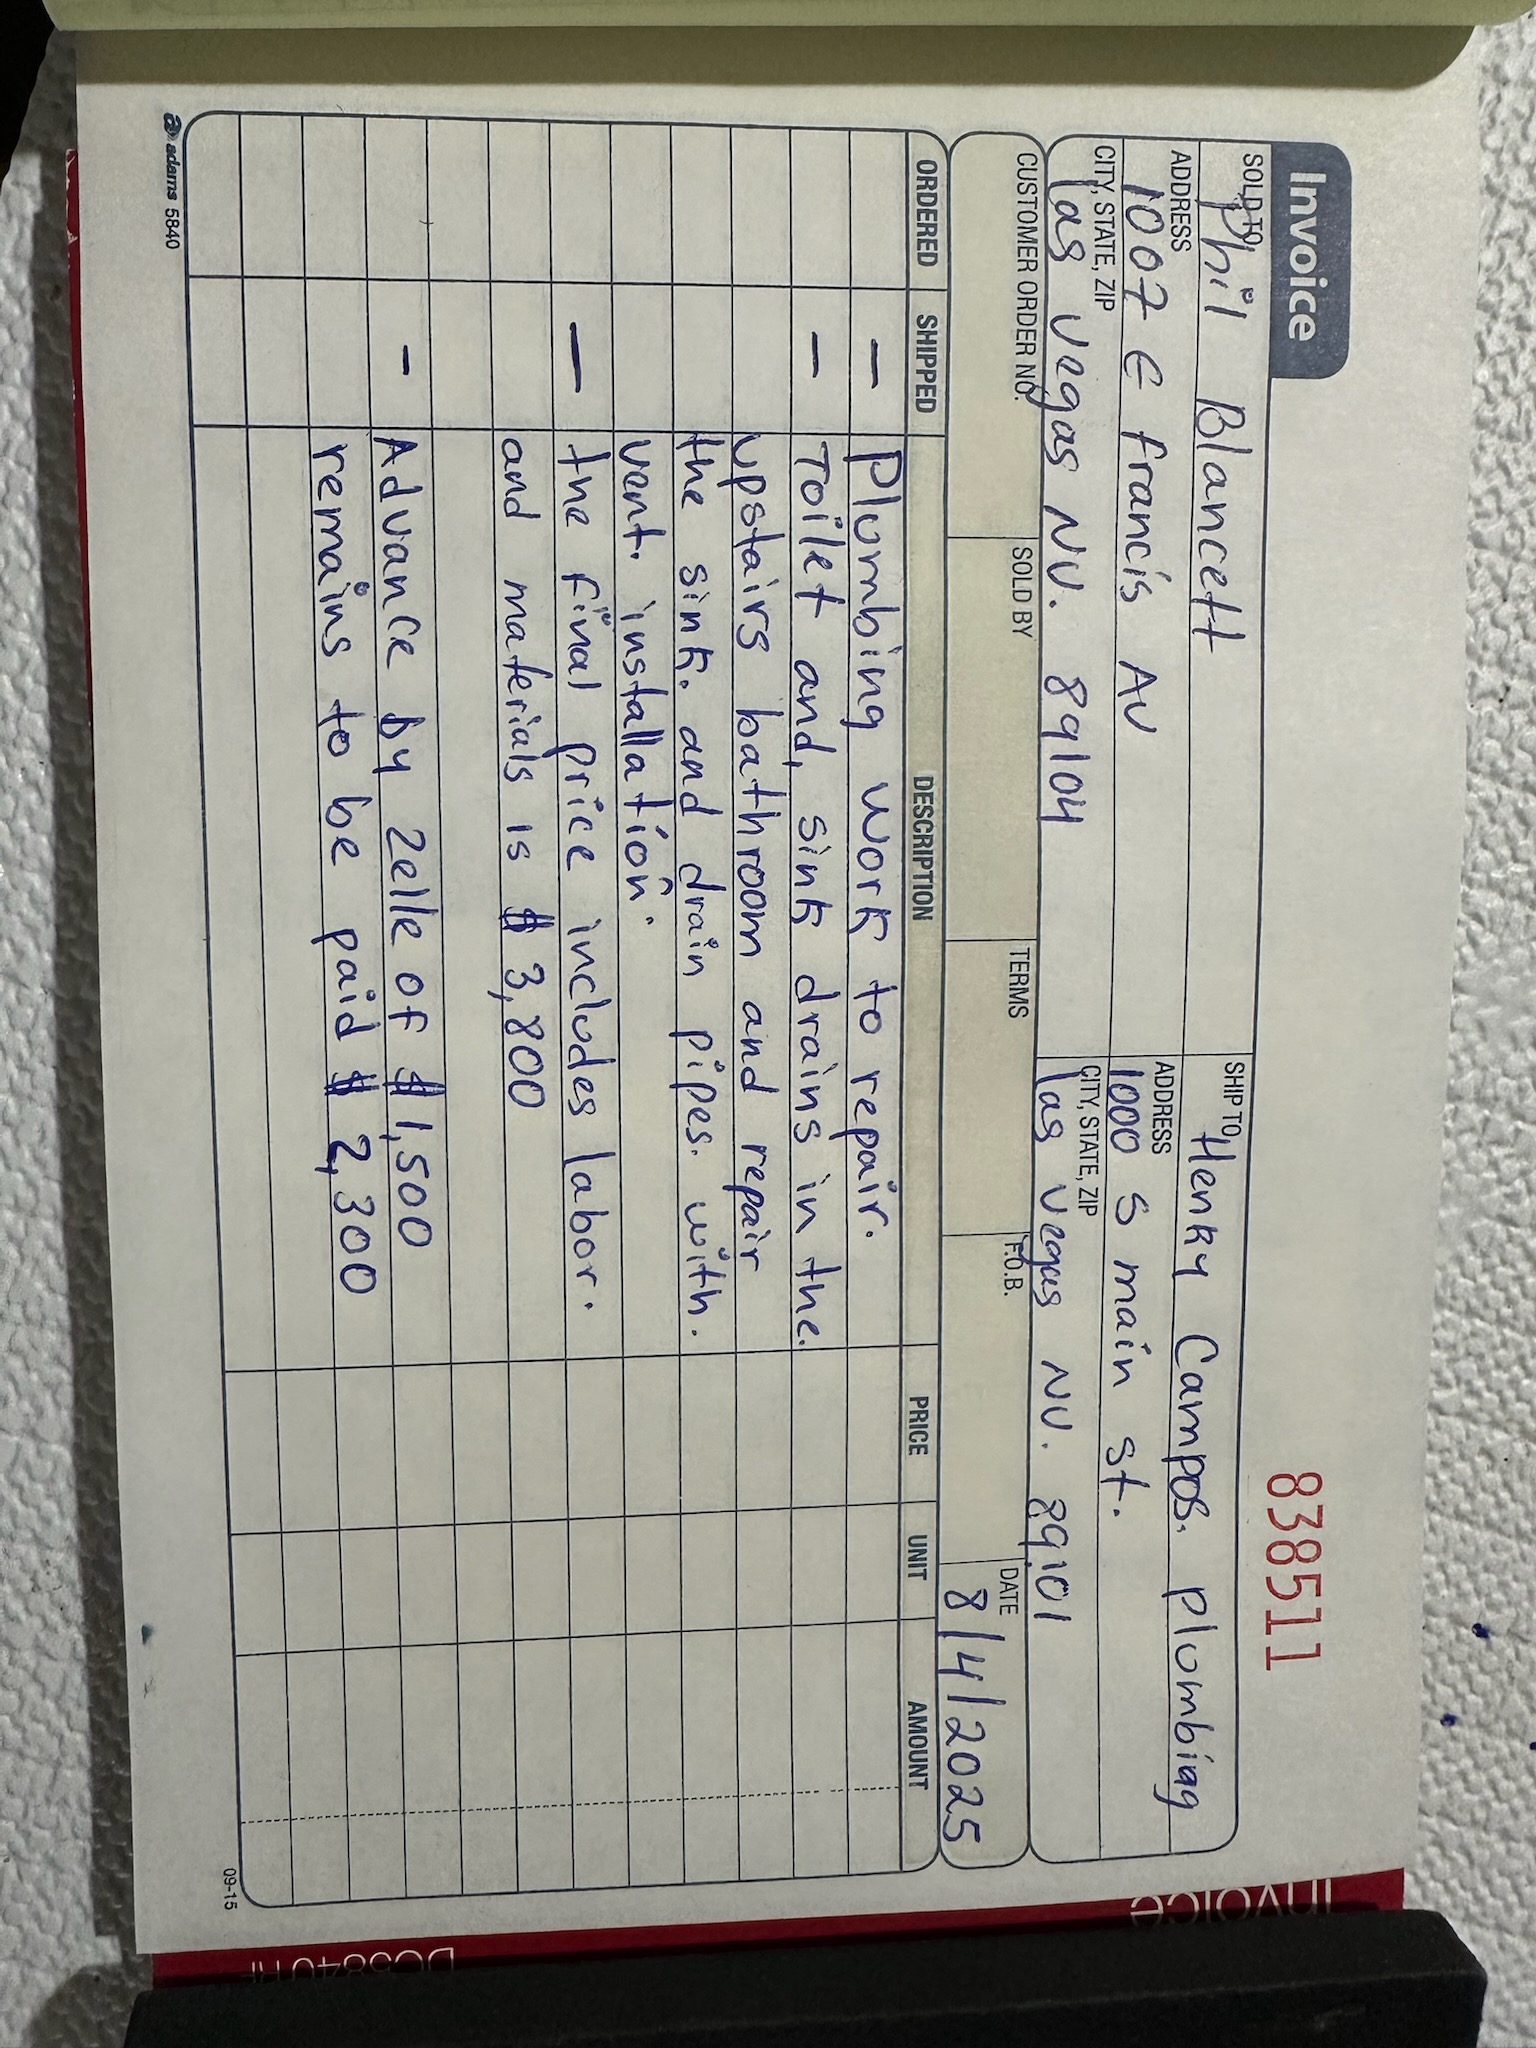 Invoice
838511
SOLD TO Phil Blancett
SHIP TO Henky Campos. plumbing
ADDRESS 1007 E francis AV
ADDRESS 1000 s main st.
CITY, STATE, ZIP las vegas NV. 89104
CITY, STATE, ZIP las vegas NV. 89101
CUSTOMER ORDER NO. SOLD BY TERMS F.O.B. DATE 8/4/2025
ORDERED SHIPPED DESCRIPTION PRICE UNIT AMOUNT
— Plumbing work to repair.
— Toilet and, sink drains in the.
upstairs bathroom and repair
the sink. and drain pipes. with.
vent. installation.
— the final price includes labor.
and materials is $ 3,800
- Advance by Zelle of $ 1,500
remains to be paid $ 2,300
adams 5840
09-15
Invoice